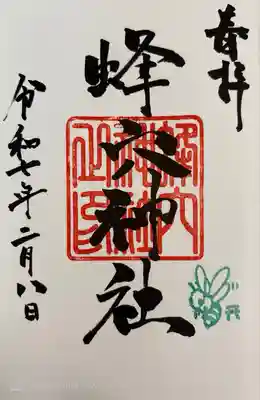 奉拝
蜂穴神社
蜂穴神社之印
令和七年二月八日